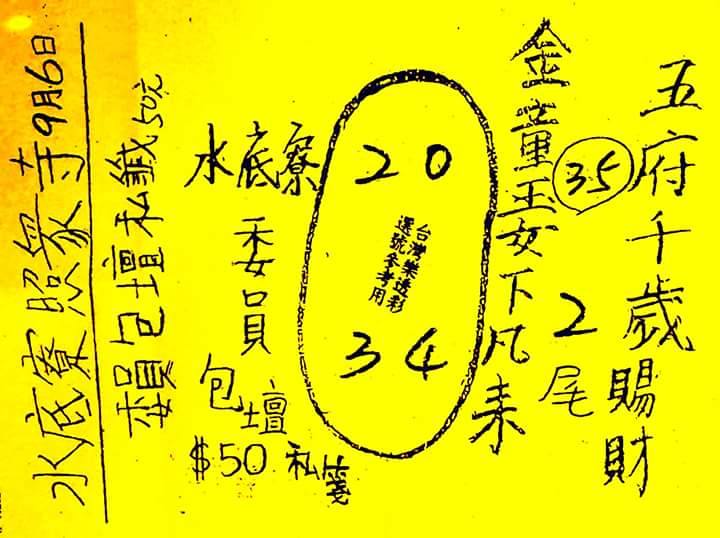 五府千歲賜財
35
2尾
金童玉女下凡來
20
台灣樂透彩
選號參考用
34
水底寮
委員
包壇
$50 私箋
委員包壇私籤50元
水底寮照眾寺9月6日